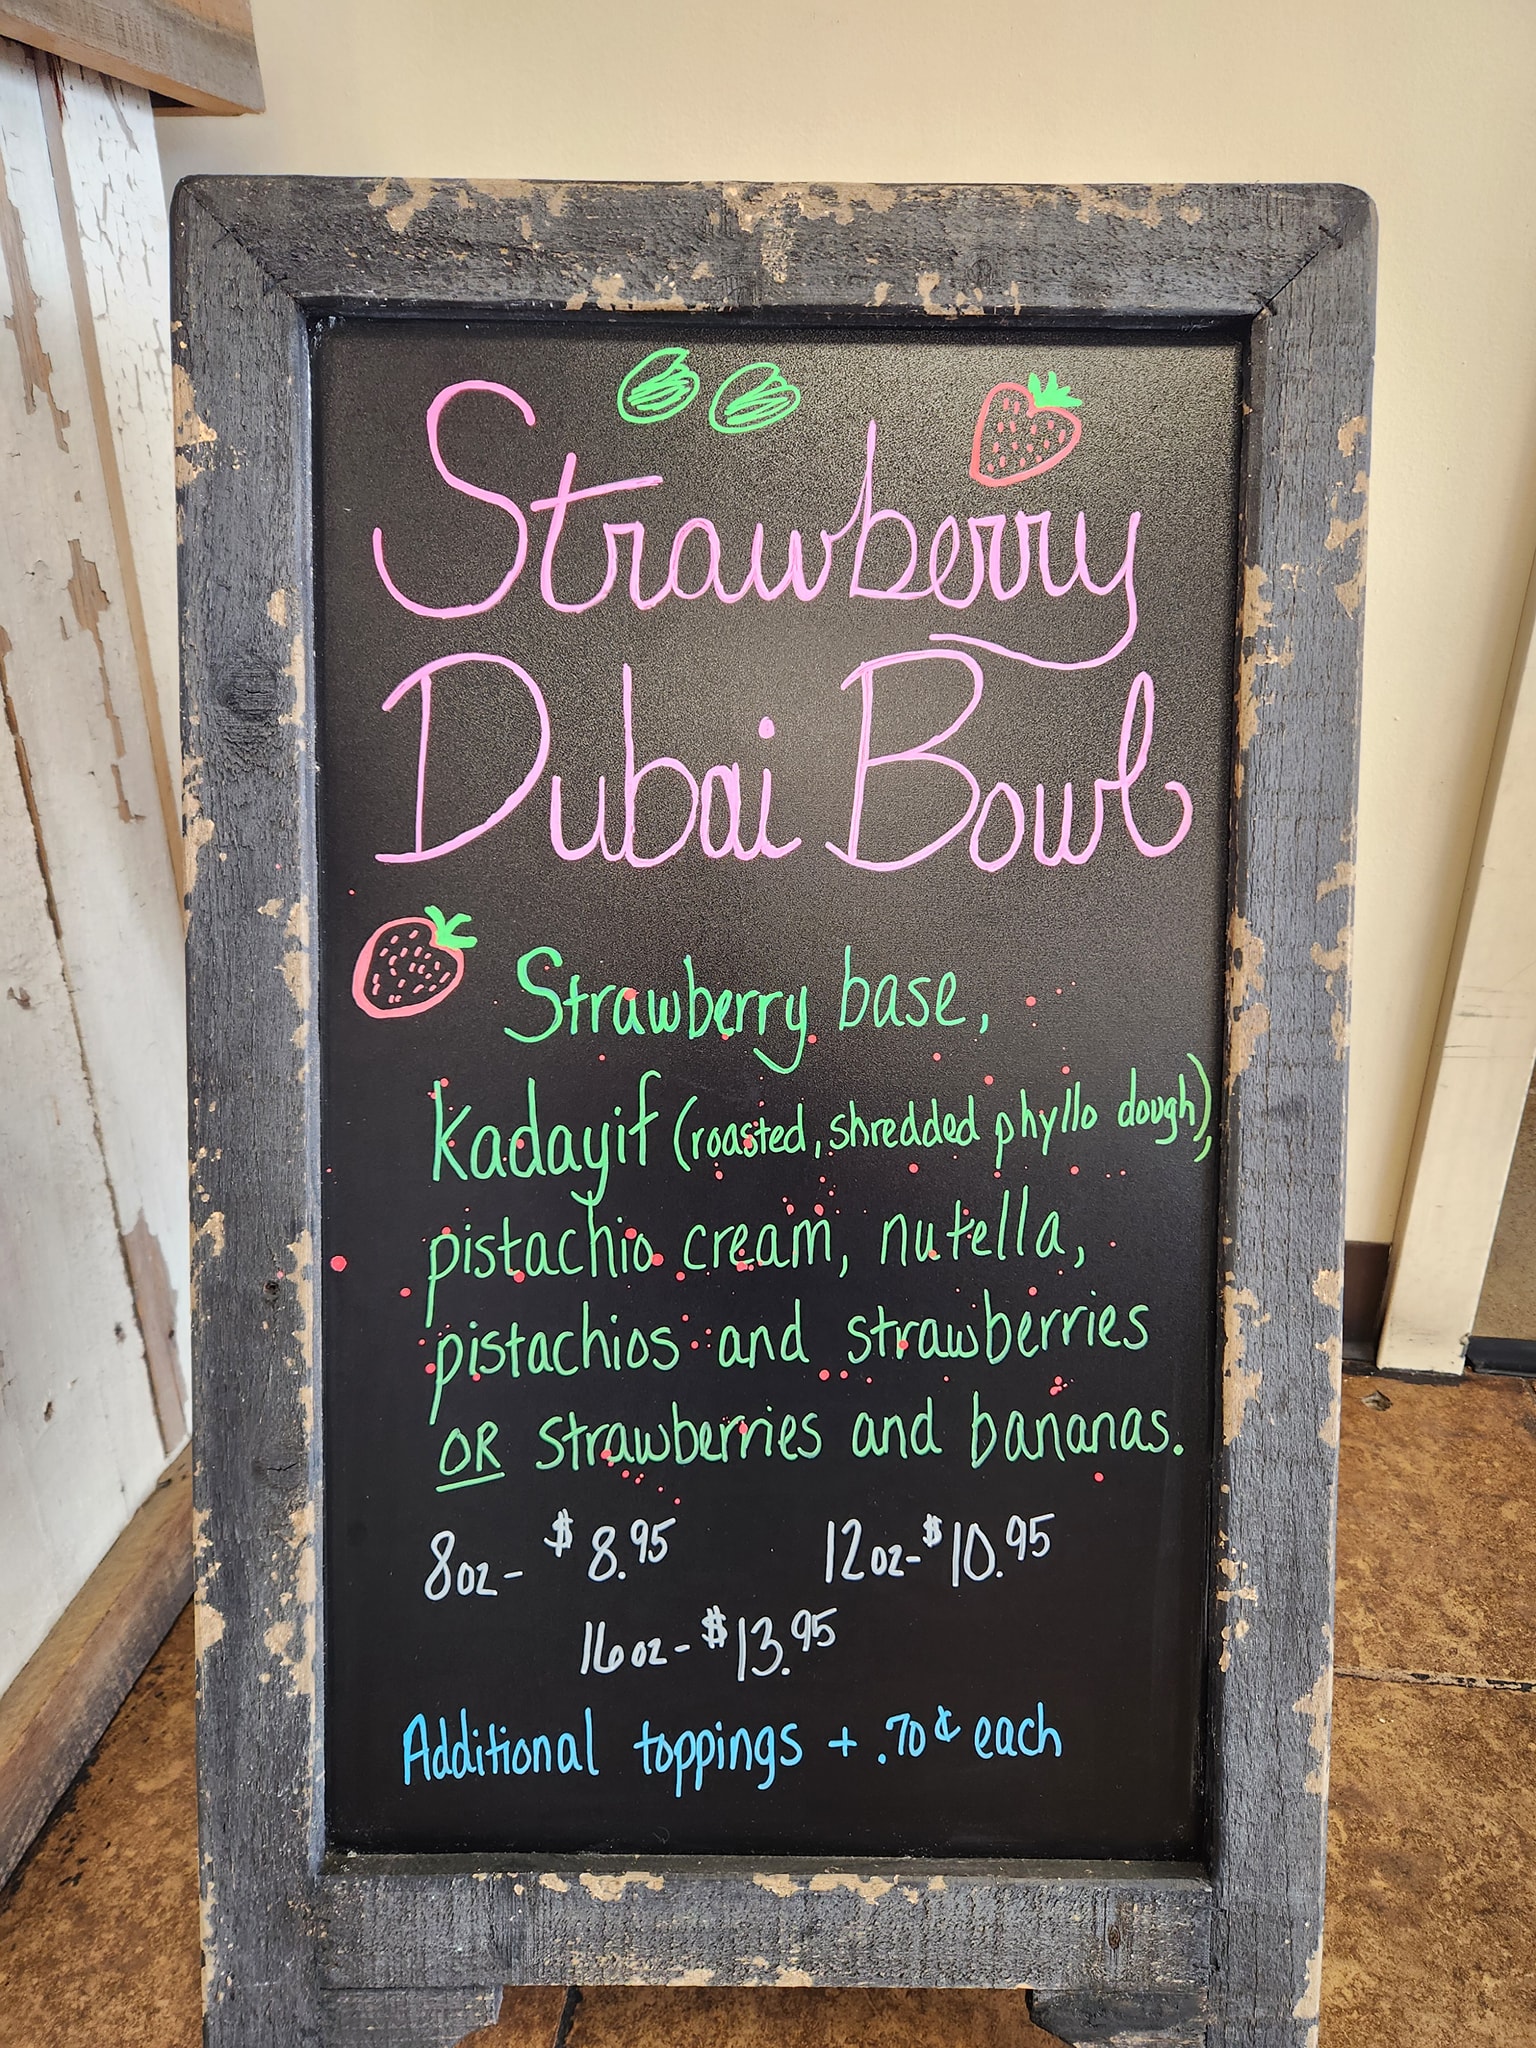 Strawberry
Dubai Bowl
Strawberry base,
Kadayif (roasted, shredded phyllo dough),
pistachio cream, nutella,
pistachios and strawberries
OR strawberries and bananas.
8oz- $8.95 12oz- $10.95
16oz- $13.95
Additional toppings + .70¢ each